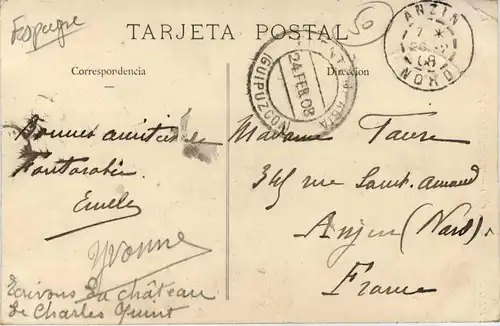 Espagne
TARJETA POSTAL
Correspondencia
Dirección
GUIPUZCOA
24 FEB 08
ANZIN
7 *
26
08
NORD
Bonnes amitiés de
Fontarabie.
Emile
Yvonne
Ecrivons du château
de Charles Quint
Madame Favre
345 rue Saint-Amand
Anzin (Nord).
France